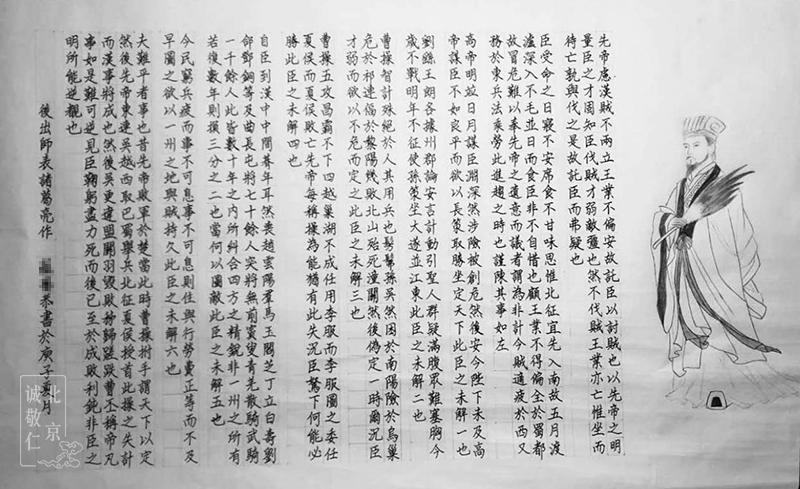 先帝慮漢賊不兩立王業不偏安故託臣以討賊也以先帝之明
量臣之才固知臣伐賊才弱敵彊也然不伐賊王業亦亡惟坐而
待亡孰與伐之是故託臣而弗疑也
臣受命之日寢不安席食不甘味思惟北征宜先入南故五月渡
瀘深入不毛並日而食臣非不自惜也顧王業不得偏全於蜀都
故冒危難以奉先帝之遺意而議者謂為非計今賊適疲於西又
務於東兵法乘勞此進趨之時也謹陳其事如左
高帝明並日月謀臣淵深然涉險被創危然後安今陛下未及高
帝謀臣不如良平而欲以長策取勝坐定天下此臣之未解一也
劉繇王朗各據州郡論安言計動引聖人群疑滿腹眾難塞胸今
歲不戰明年不征使孫策坐大遂並江東此臣之未解二也
曹操智計殊絕於人其用兵也髣髴孫吳然困於南陽險於烏巢
危於祁連偪於黎陽幾敗北山殆死潼關然後偽定一時爾況臣
才弱而欲以不危而定之此臣之未解三也
曹操五攻昌霸不下四越巢湖不成任用李服而李服圖之委任
夏侯而夏侯敗亡先帝每稱操為能猶有此失況臣駑下何能必
勝此臣之未解四也
自臣到漢中中間朞年耳然喪趙雲陽羣馬玉閻芝丁立白壽劉
郃鄧銅等及曲長屯將七十餘人突將無前賨叟青羌散騎武騎
一千餘人此皆數十年之內所糾合四方之精銳非一州之所有
若復數年則損三分之二也當何以圖敵此臣之未解五也
今民窮兵疲而事不可息事不可息則住與行勞費正等而不及
早圖之欲以一州之地與賊持久此臣之未解六也
夫難平者事也昔先帝敗軍於楚當此時曹操拊手謂天下以定
然後先帝東連吳越西取巴蜀舉兵北征夏侯授首此操之失計
而漢事將成也然後吳更違盟關羽毀敗秭歸蹉跌曹丕稱帝凡
事如是難可逆見臣鞠躬盡力死而後已至於成敗利鈍非臣之
明所能逆覩也
後出師表諸葛亮作 恭書於庚子夏月
北京
诚敬仁